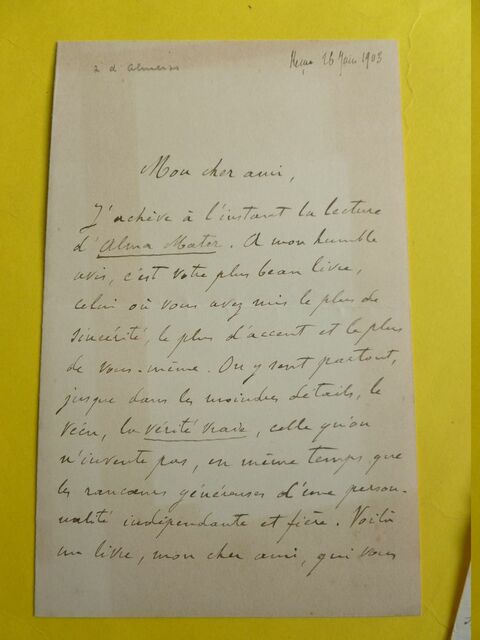 à d'Almeras
Reçu 26 Juin 1903
Mon cher ami,
J'achève à l'instant la lecture
d'Alma Mater. A mon humble
avis, c'est votre plus beau livre,
celui où vous avez mis le plus de
sincérité, le plus d'accent et le plus
de vous-même. On y sent partout,
jusque dans les moindres détails, le
vécu, la vérité vraie, celle qu'on
n'invente pas, en même temps que
les rancœurs généreuses d'une person-
nalité indépendante et fière. Voilà
un livre, mon cher ami, qui vous